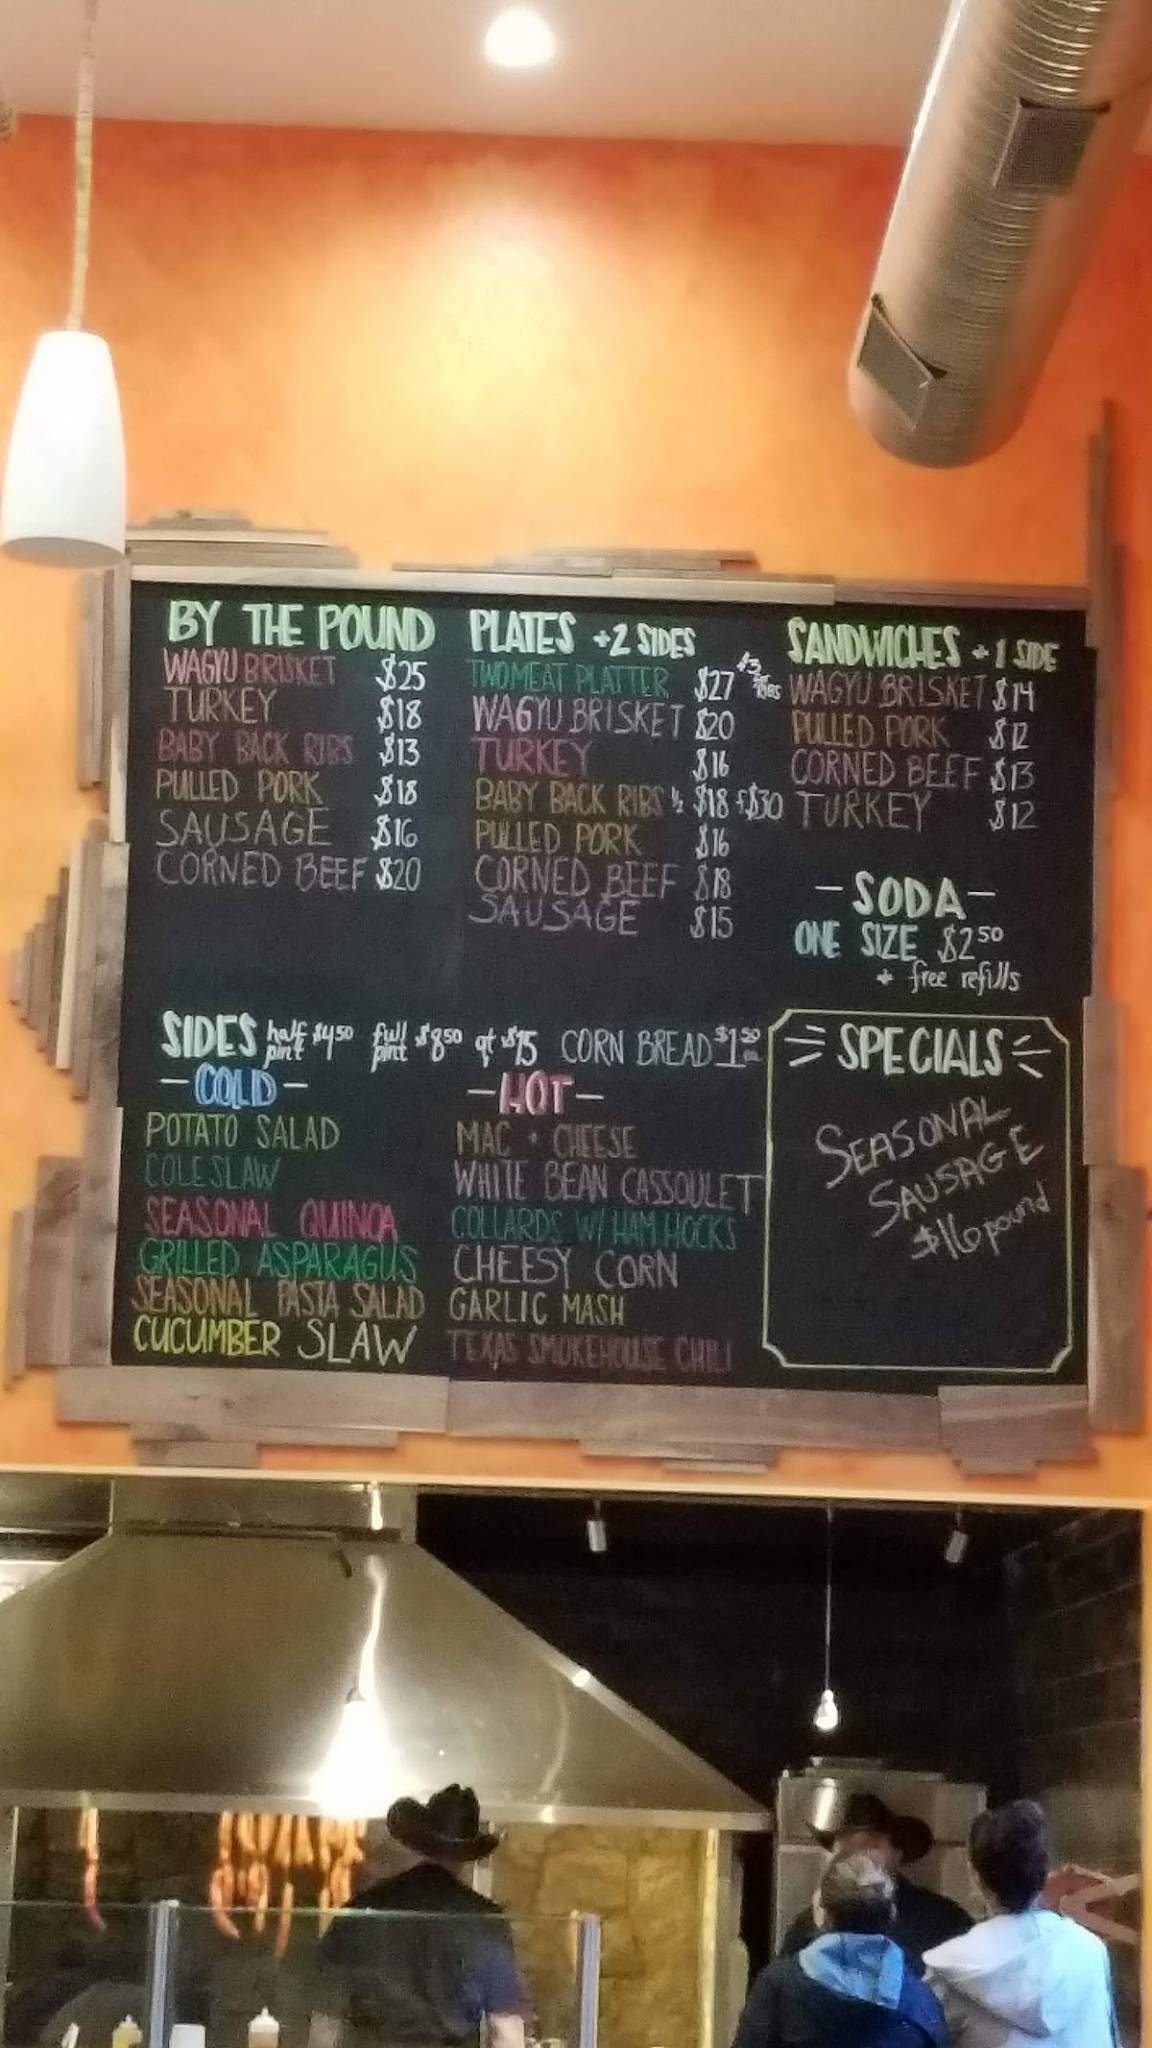 BY THE POUND
WAGYU BRISKET $25
TURKEY $18
BABY BACK RIBS $13
PULLED PORK $18
SAUSAGE $16
CORNED BEEF $20
PLATES +2 SIDES
TWO MEAT PLATTER $27 +$3 RIBS
WAGYU BRISKET $20
TURKEY $16
BABY BACK RIBS ½ $18 f $30
PULLED PORK $16
CORNED BEEF $18
SAUSAGE $15
SANDWICHES + 1 SIDE
WAGYU BRISKET $14
PULLED PORK $12
CORNED BEEF $13
TURKEY $12
- SODA -
ONE SIZE $2 50
+ free refills
SIDES half pint $4 50 full pint $8 50 qt $15 CORN BREAD $1 50 ea
- COLD -
POTATO SALAD
COLESLAW
SEASONAL QUINOA
GRILLED ASPARAGUS
SEASONAL PASTA SALAD
CUCUMBER SLAW
- HOT -
MAC + CHEESE
WHITE BEAN CASSOULET
COLLARDS W/ HAM HOCKS
CHEESY CORN
GARLIC MASH
TEXAS SMOKEHOUSE CHILI
SPECIALS
SEASONAL
SAUSAGE
$16 pound